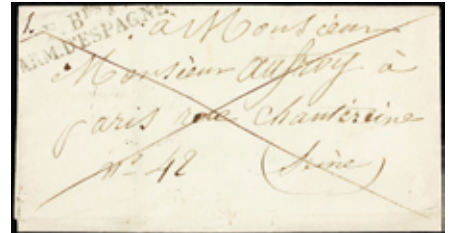 1.
Bau
ARM. D'ESPAGNE
à Monsieur
Monsieur Aufroy à
paris rue Chantereine
n° 42 (Seine)